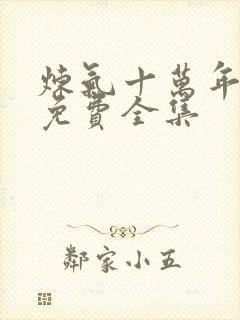 煉氣十萬年
免費全集
鄰家小五